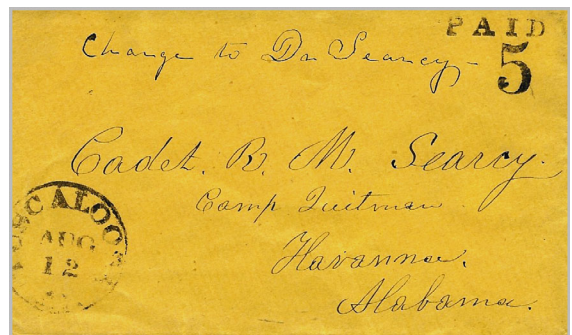 PAID
5
Charge to Dr Searcy -
Cadet. R. M. Searcy.
Camp Quitman
Havanna.
Alabama.
TUSCALOOSA
AUG
12